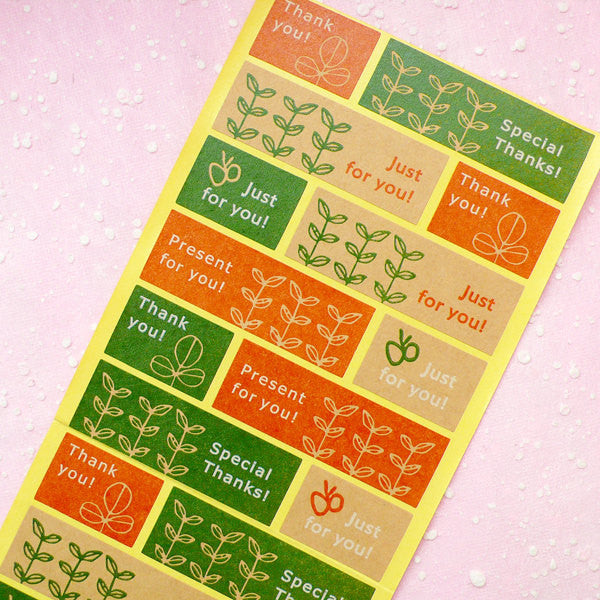 Thank
you!
Special
Thanks!
Just
for you!
Thank
you!
Just
for you!
Just
for you!
Present
for you!
Thank
you!
Just
for you!
Present
for you!
Special
Thanks!
Thank
you!
Just
for you!
Special
Thanks!